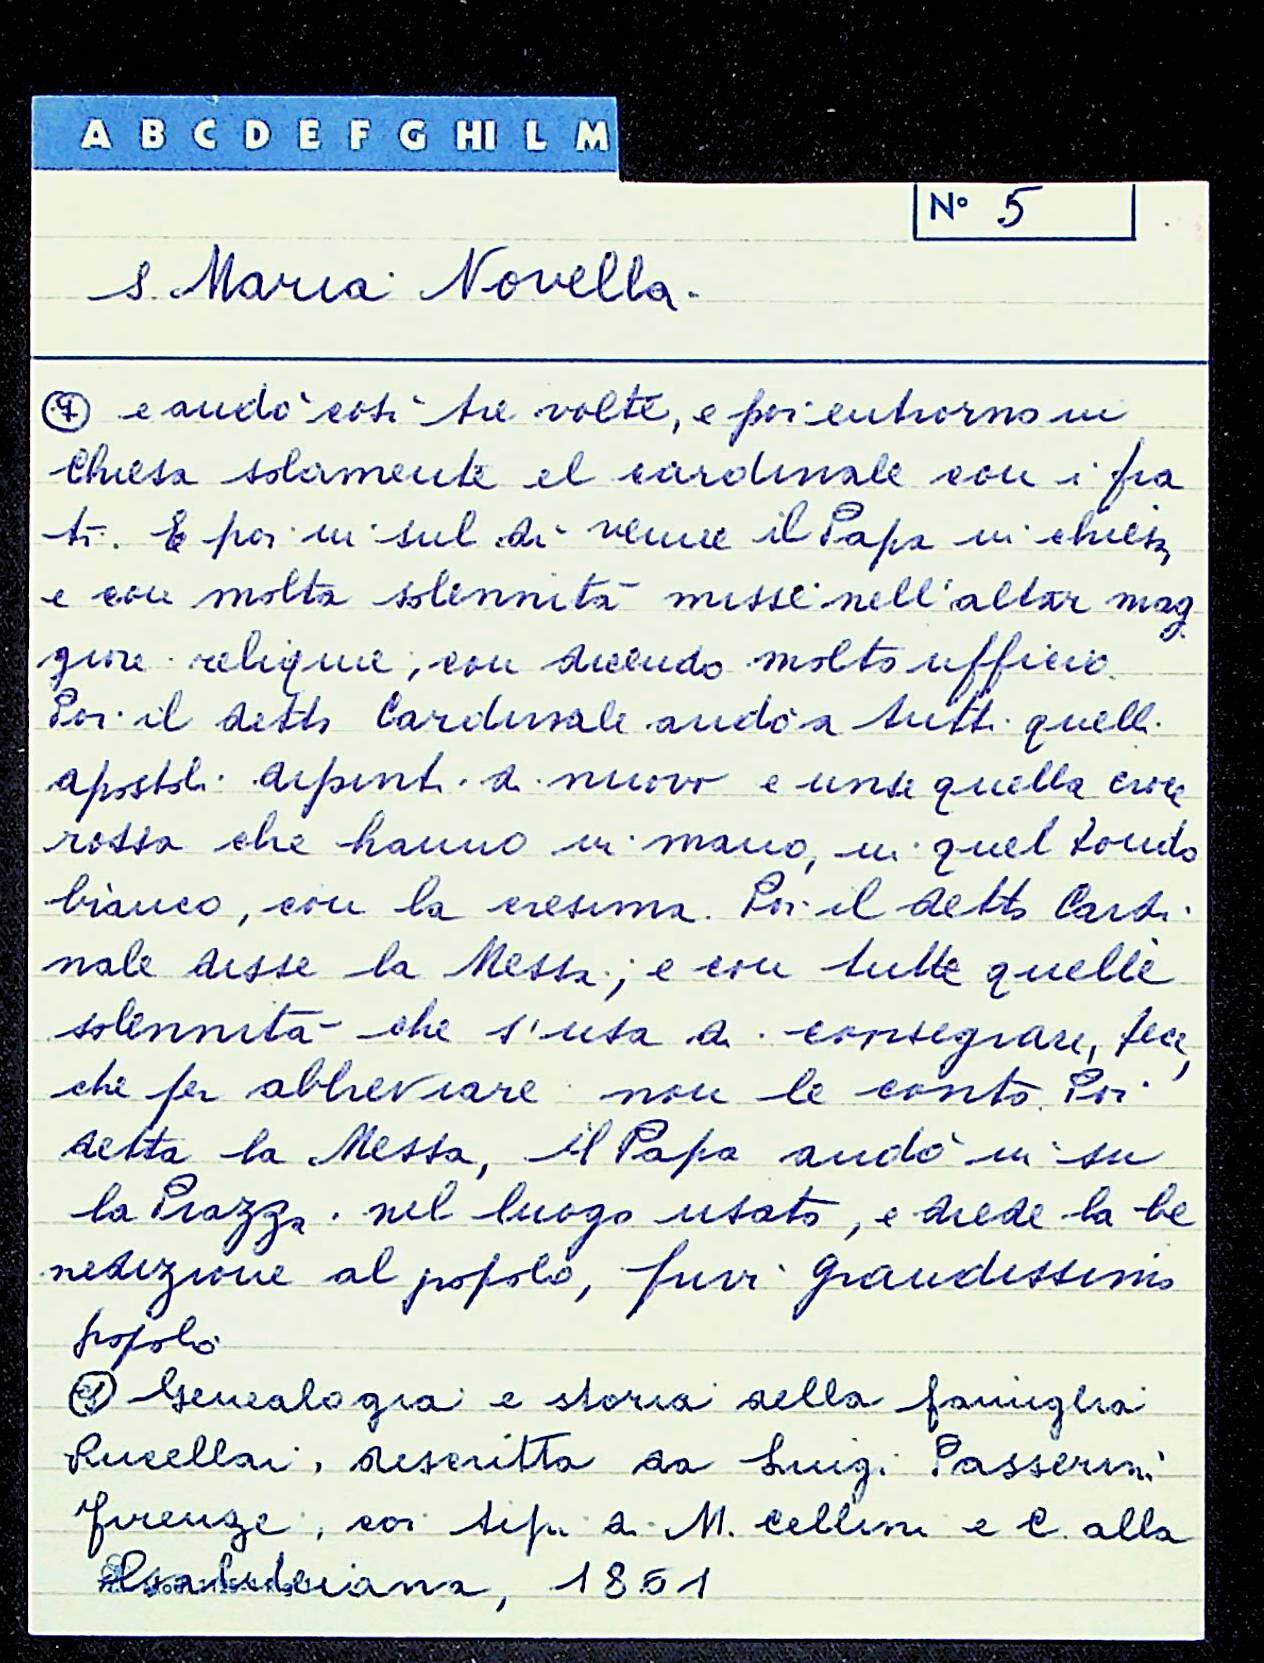 A B C D E F G HI L M
Nº 5
S. Maria Novella.
7 e andò così tre volte, e poi entrorno in
Chiesa solamente el cardinale con i fra
ti. E poi in sul dì venne il Papa in chiesa,
e con molta solennità messe nell'altar mag
giore reliquie, con dicendo molto ufficio.
Poi il detto Cardinale andò a tutti quelli
apostoli dipinti di nuovo e unse quella croce
rossa che hanno in mano, in quel tondo
bianco, con la cresima. Poi il detto Cardi
nale disse la Messa; e con tutte quelle
solennità che s'usa di consegrare, fece,
che per abbreviare non le conto. Poi
detta la Messa, il Papa andò in su
la Piazza nel luogo usato, e diede la be
nedizione al popolo, fuvi grandissimo
popolo
Genealogia e storia della famiglia
Rucellai, descritta da Luigi Passerini
Firenze, coi tipi di M. Cellini e C. alla
1861